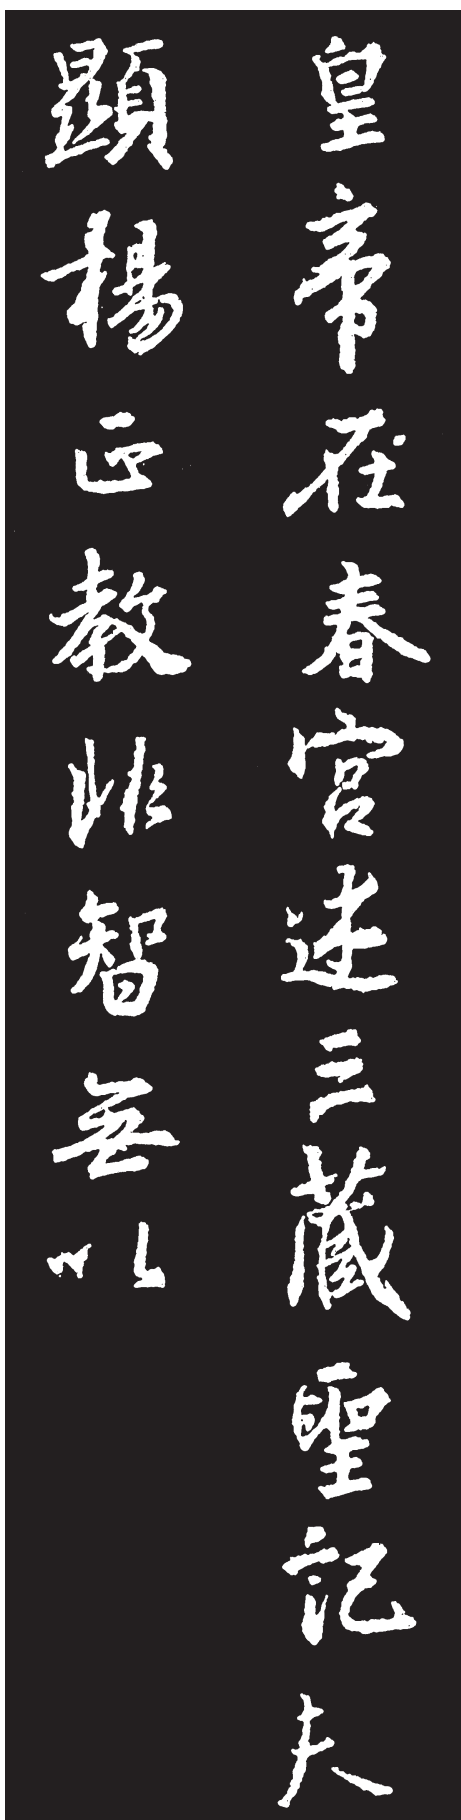 皇帝在春宮述三藏聖記夫
顯揚正教非智無以